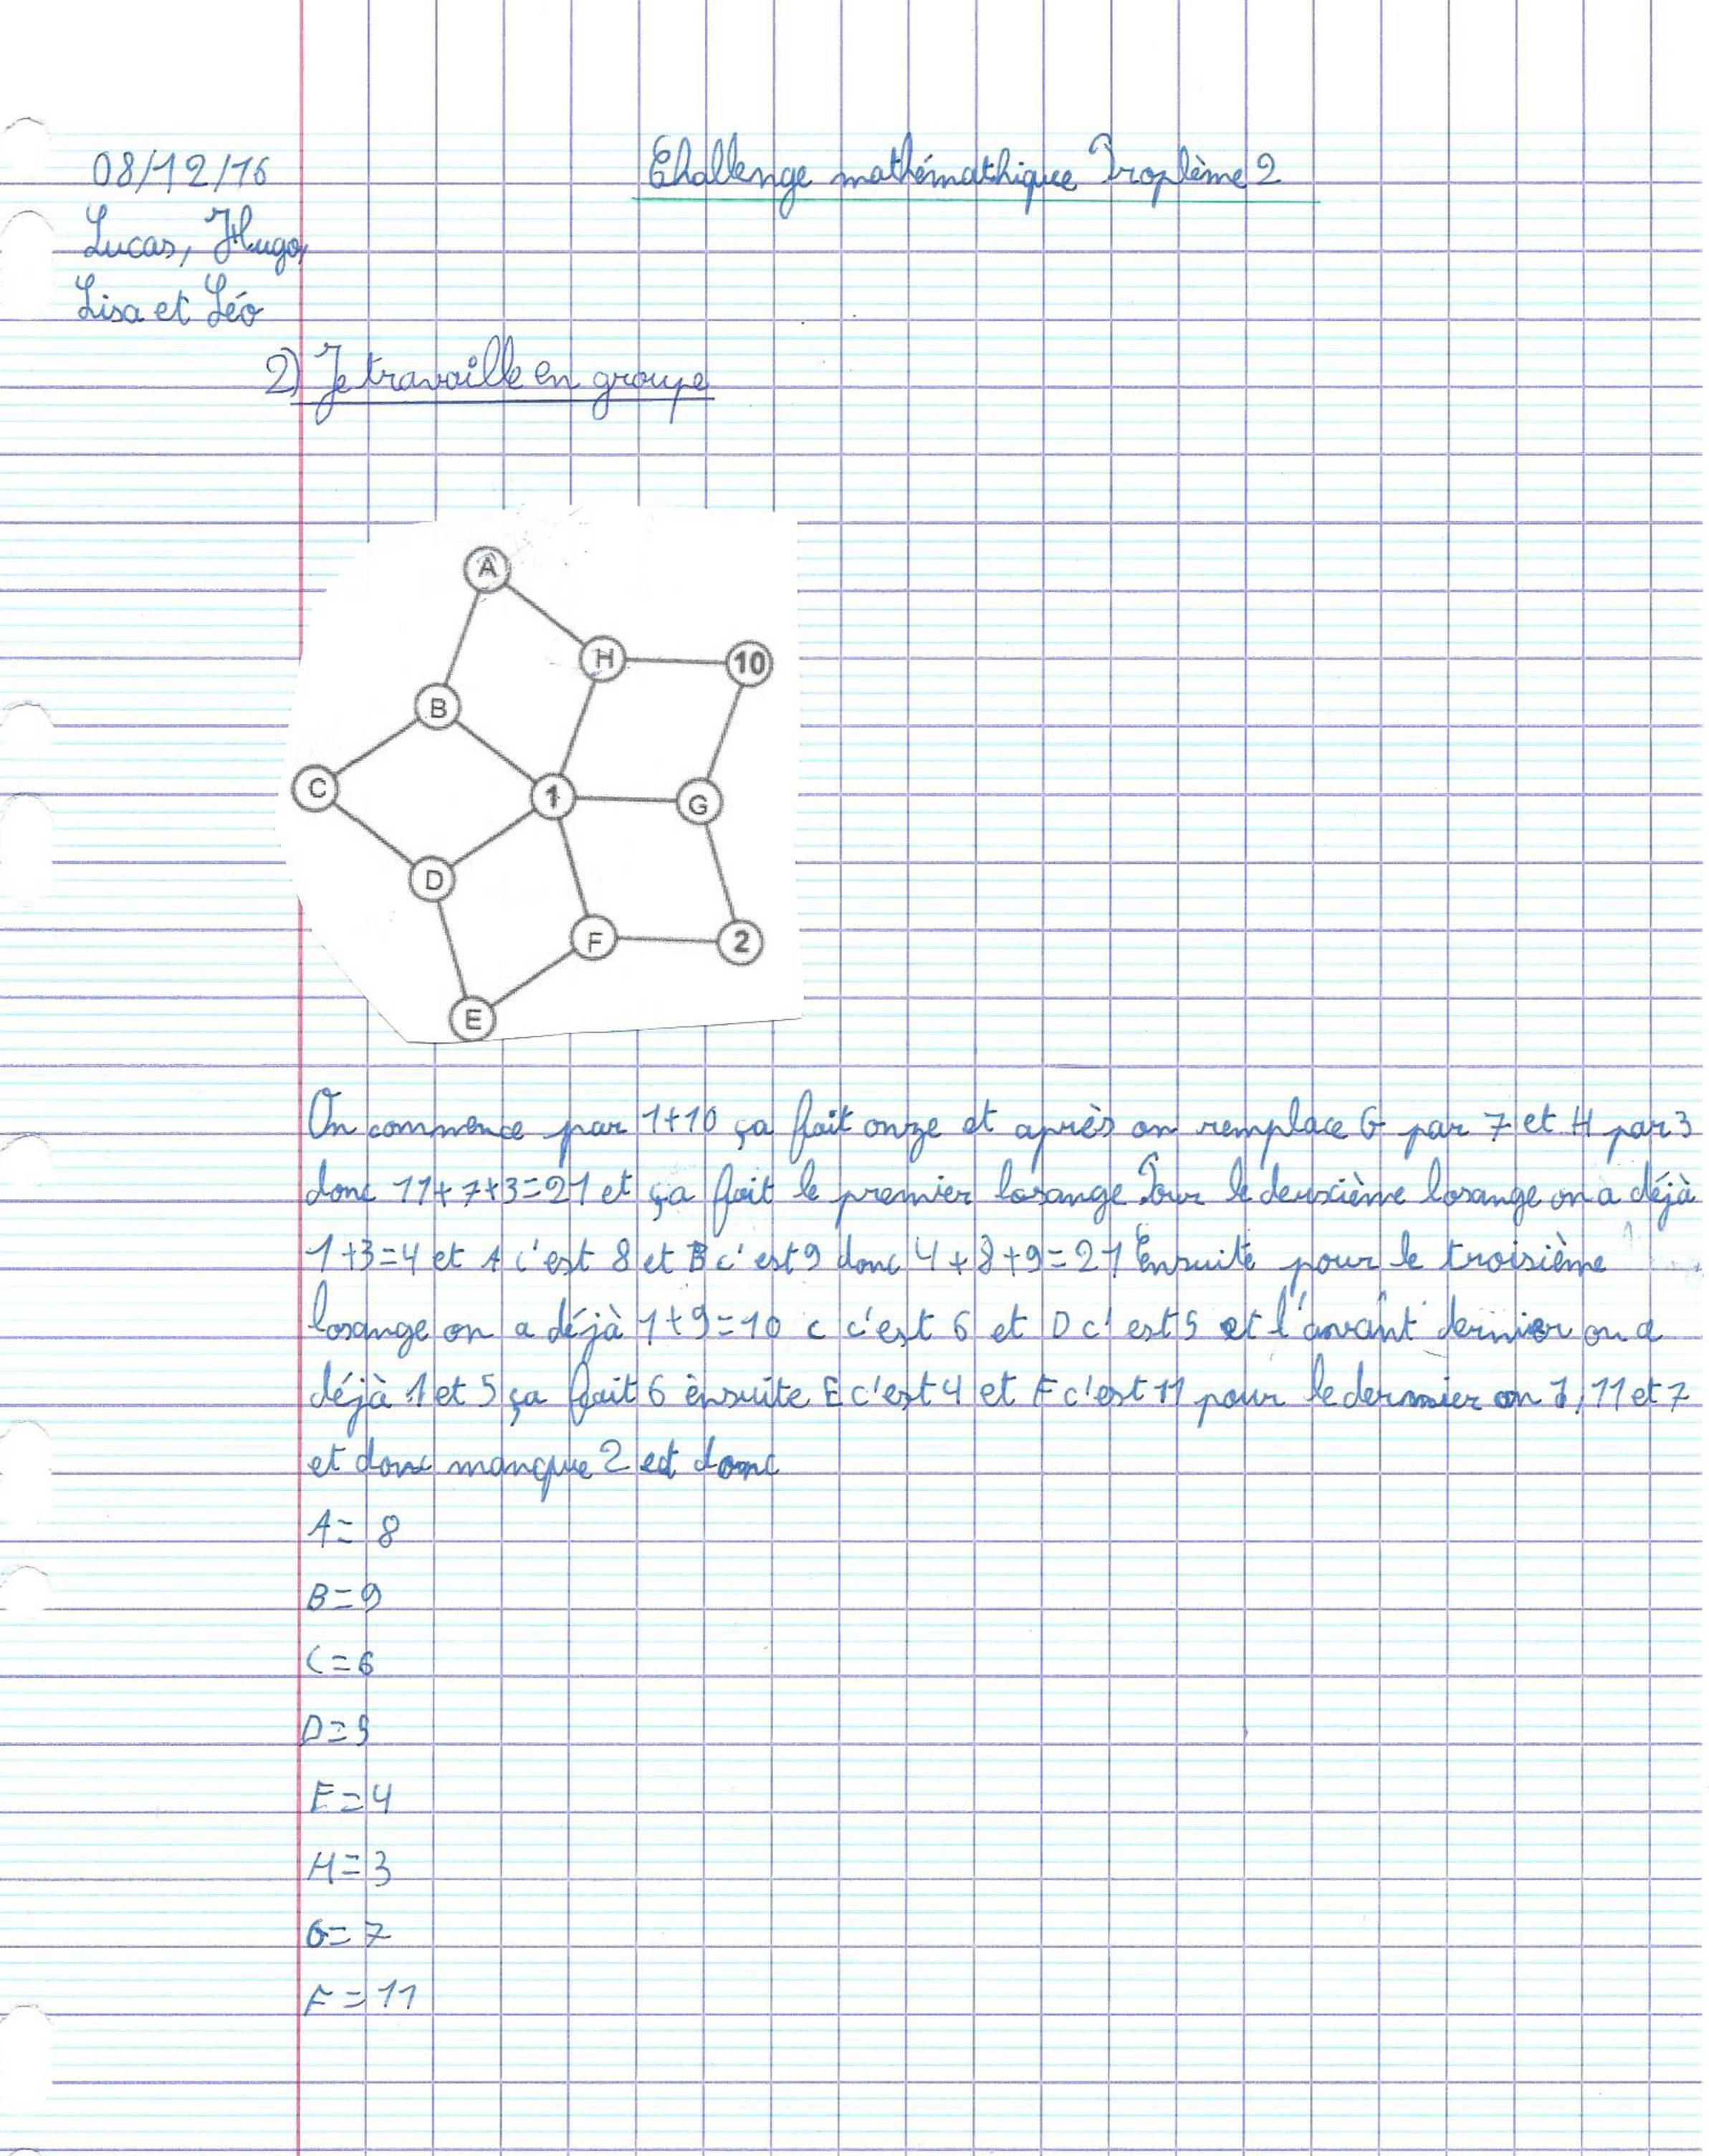 08/12/16
Challenge mathémathique Proplème 2
Lucas, Hugo,
Lisa et Léo
2) Je travaille en groupe
A
H
10
B
C
1
G
D
F
2
E
On commence par 1+10 ça fait onze et après on remplace G par 7 et H par 3
donc 11+7+3=21 et ça fait le premier losange Pour le deuxième losange on a déjà
1+3=4 et A c'est 8 et B c'est 9 donc 4+8+9=21 Ensuite pour le troisième
losange on a déjà 1+9=10 C c'est 6 et D c'est 5 et l'avant dernier on a
déjà 1 et 5 ça fait 6 ènsuite E c'est 4 et F c'est 11 pour le dernier on 1, 11 et 7
et donc manque 2 et donc
A= 8
B=9
C=6
D=5
E=4
H=3
G=7
F=11